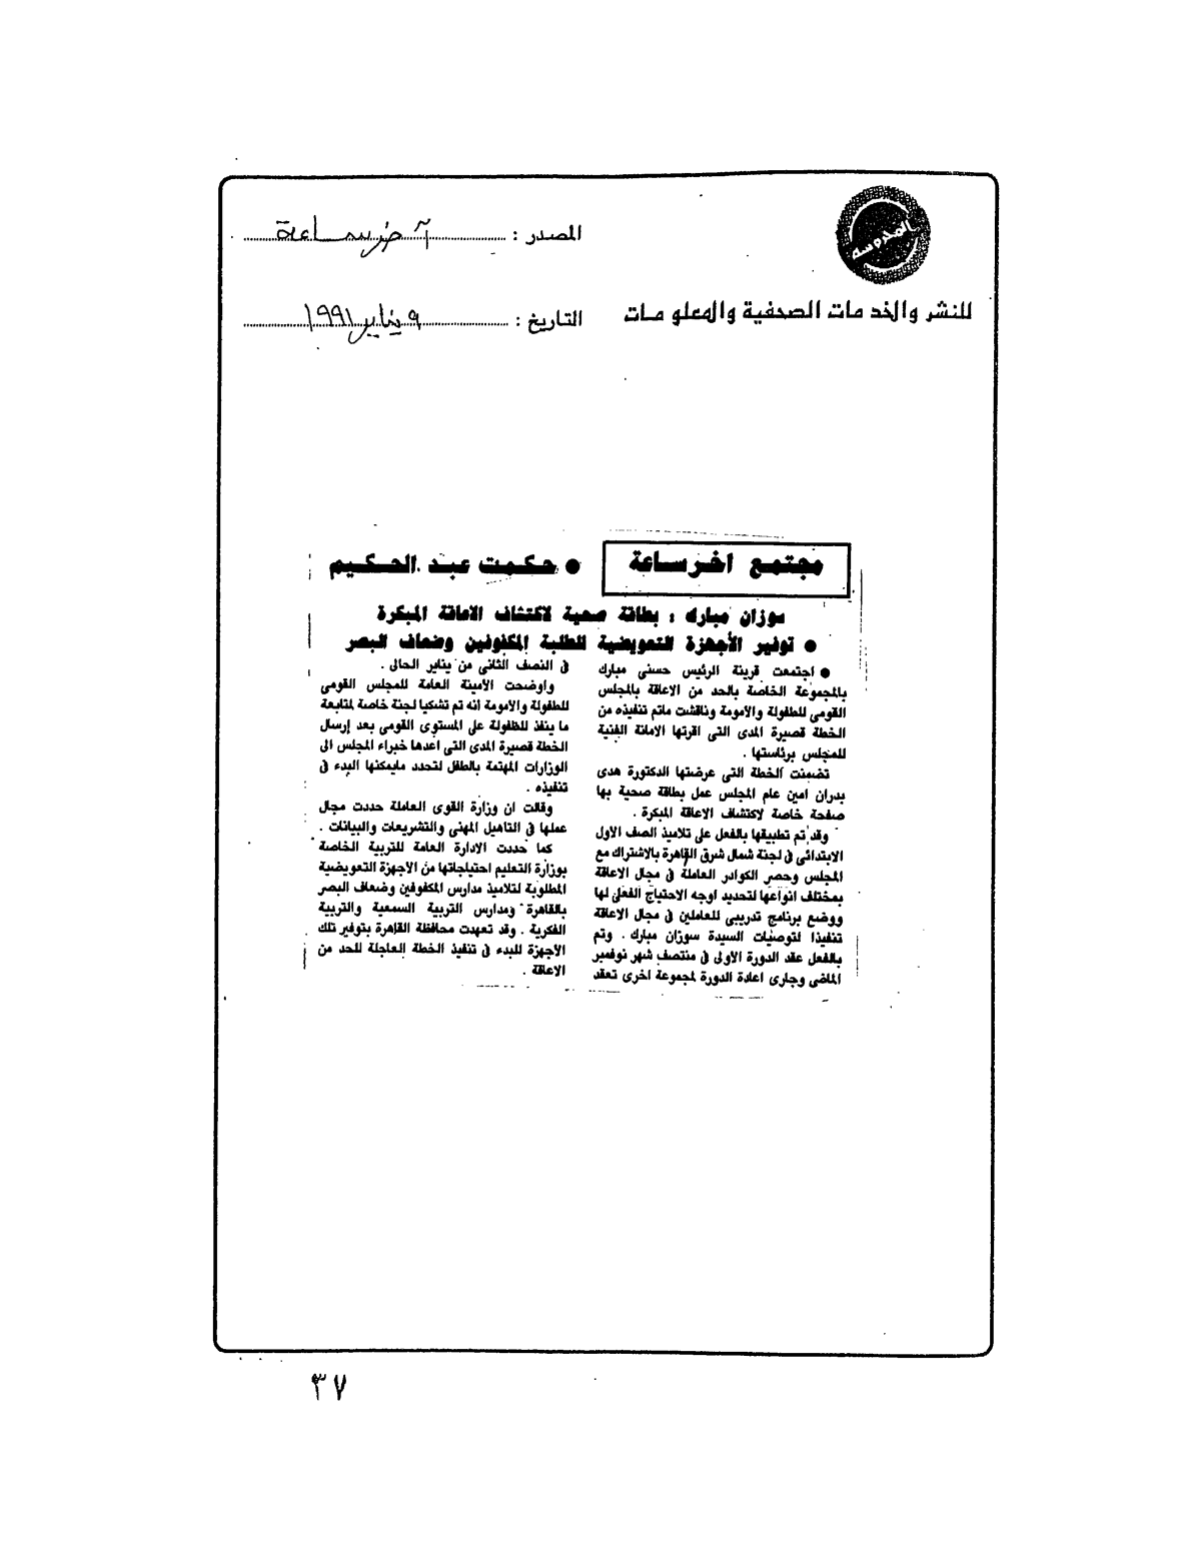 المحروسة
المصدر : آخر ساعة
للنشر والخدمات الصحفية والمعلومات
التاريخ : ٩ يناير ١٩٩١
مجتمع اخر ساعة
● حكمت عبد الحكيم
سوزان مبارك : بطاقة صحية لاكتشاف الاعاقة المبكرة
● توفير الأجهزة التعويضية للطلبة المكفوفين وضعاف البصر
● اجتمعت قرينة الرئيس حسنى مبارك
بالمجموعة الخاصة بالحد من الاعاقة بالمجلس
القومى للطفولة والامومة وناقشت ماتم تنفيذه من
الخطة قصيرة المدى التى اقرتها الامانة الفنية
للمجلس برئاستها .
تضمنت الخطة التى عرضتها الدكتورة هدى
بدران امين عام المجلس عمل بطاقة صحية بها
صفحة خاصة لاكتشاف الاعاقة المبكرة .
وقد تم تطبيقها بالفعل على تلاميذ الصف الأول
الابتدائى فى لجنة شمال شرق القاهرة بالاشتراك مع
المجلس وحصر الكوادر العاملة فى مجال الاعاقة
بمختلف انواعها لتحديد اوجه الاحتياج الفعلى لها
ووضع برنامج تدريبى للعاملين فى مجال الاعاقة
تنفيذا لتوصيات السيدة سوزان مبارك . وتم
بالفعل عقد الدورة الاولى فى منتصف شهر نوفمبر
الماضى وجارى اعادة الدورة لمجموعة اخرى تعقد
فى النصف الثانى من يناير الحالى .
واوضحت الامينة العامة للمجلس القومى
للطفولة والامومة انه تم تشكيا لجنة خاصة لمتابعة
ما ينفذ للطفولة على المستوى القومى بعد إرسال
الخطة قصيرة المدى التى اعدها خبراء المجلس الى
الوزارات المهتمة بالطفل لتحدد مايمكنها البدء فى
تنفيذه .
وقالت ان وزارة القوى العاملة حددت مجال
عملها فى التاهيل المهنى والتشريعات والبيانات .
كما حددت الادارة العامة للتربية الخاصة
بوزارة التعليم احتياجاتها من الاجهزة التعويضية
المطلوبة لتلاميذ مدارس المكفوفين وضعاف البصر
بالقاهرة ومدارس التربية السمعية والتربية
الفكرية . وقد تعهدت محافظة القاهرة بتوفير تلك
الأجهزة للبدء فى تنفيذ الخطة العاجلة للحد من
الاعاقة .
٣٧